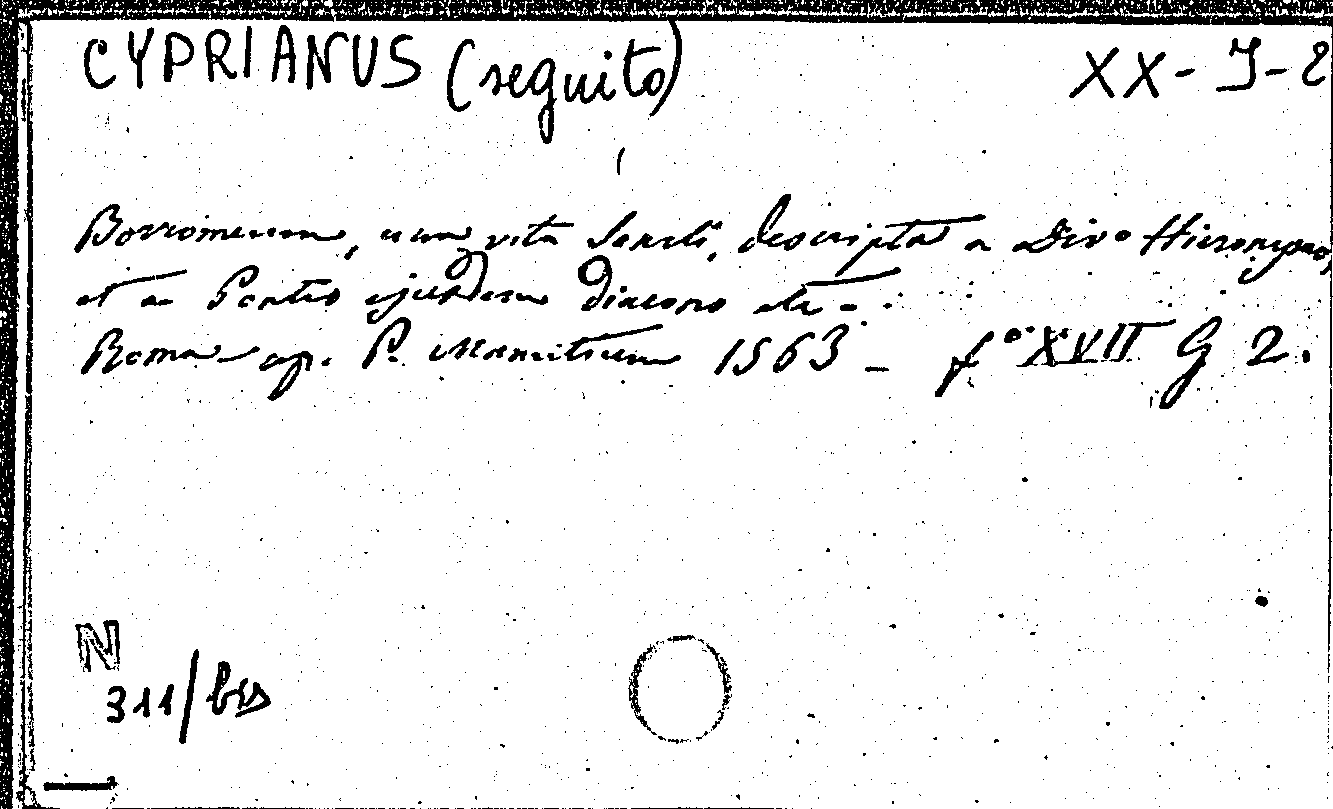 CYPRIANUS (seguito) XX-J-2
Borromeum, cum vita Sancti, descripta a Divo Hieronymo,
et a Pontio ejusdem diacono etc..
Roma ap. P. Manutium 1563 - f° XVII G 2.
N
311/bis